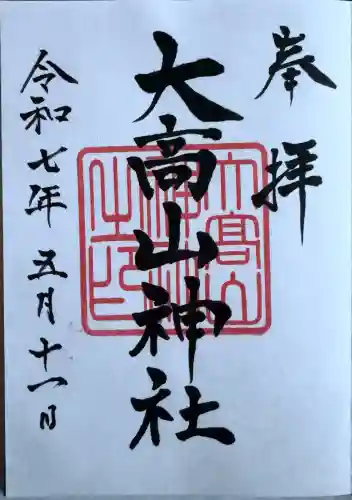 奉拝
大高山神社
令和七年五月十一日